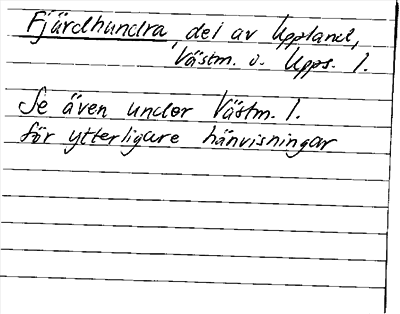 Fjärdhundra, del av Uppland,
Västm. o. Upps. l.
Se även under Västm. l.
för ytterligare hänvisningar